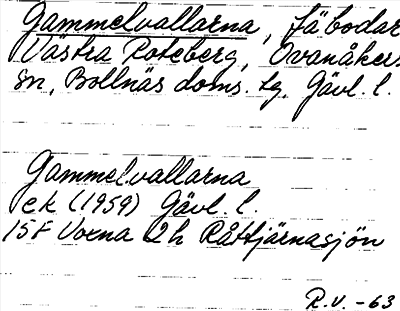 Gammelvallarna, fäbodar
Västra Roteberg, Ovanåkers
sn, Bollnäs doms. tg, Gävl. l.
Gammelvallarna
ek (1959) Gävl. l.
15F Voxna 2h Råttjärnasjön
R.V. -63